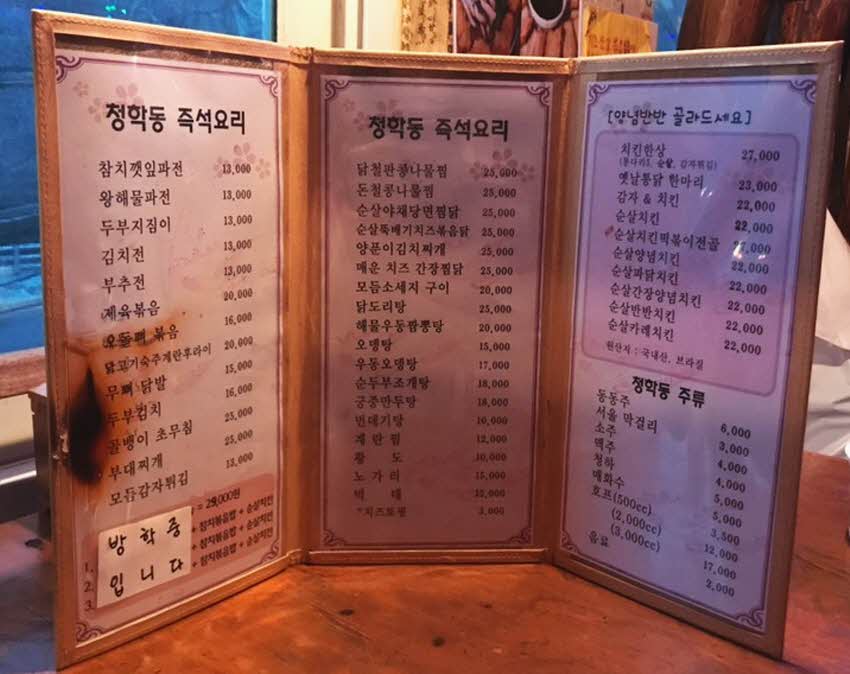 청학동 즉석요리
참치깻잎파전 13,000
왕해물파전 13,000
두부지짐이 13,000
김치전 13,000
부추전 13,000
제육볶음 20,000
오돌뼈 볶음 16,000
닭고기숙주계란후라이 20,000
무뼈 닭발 15,000
두부김치 16,000
골뱅이 초무침 25,000
부대찌개 25,000
모듬감자튀김 13,000
= 29,000원
1. + 참치볶음밥 + 순살치킨
2. + 참치볶음밥 + 순살치킨
3. + 참치볶음밥 + 순살치킨
방학중
입니다
청학동 즉석요리
닭철판콩나물찜 25,000
돈철콩나물찜 25,000
순살야채당면찜닭 25,000
순살뚝배기치즈볶음닭 25,000
양푼이김치찌개 25,000
매운 치즈 간장찜닭 25,000
모듬소세지 구이 20,000
닭도리탕 25,000
해물우동짬뽕탕 20,000
오뎅탕 15,000
우동오뎅탕 17,000
순두부조개탕 18,000
궁중만두탕 18,000
번데기탕 10,000
계란찜 12,000
황 도 10,000
노가리 15,000
먹 태
*치즈토핑 3,000
[양념반반 골라드세요]
치킨한상 27,000
(통다리3, 순살, 감자튀김)
옛날통닭 한마리 23,000
감자 & 치킨 22,000
순살치킨 22,000
순살치킨떡볶이전골 27,000
순살양념치킨 22,000
순살파닭치킨 22,000
순살간장양념치킨 22,000
순살반반치킨 22,000
순살카레치킨 22,000
원산자 : 국내산, 브라질
청학동 주류
동동주 6,000
서울 막걸리 3,000
소주 4,000
맥주 4,000
청하 5,000
매화수 5,000
호프(500cc) 3,500
(2,000cc) 12,000
(3,000cc) 17,000
음료 2,000